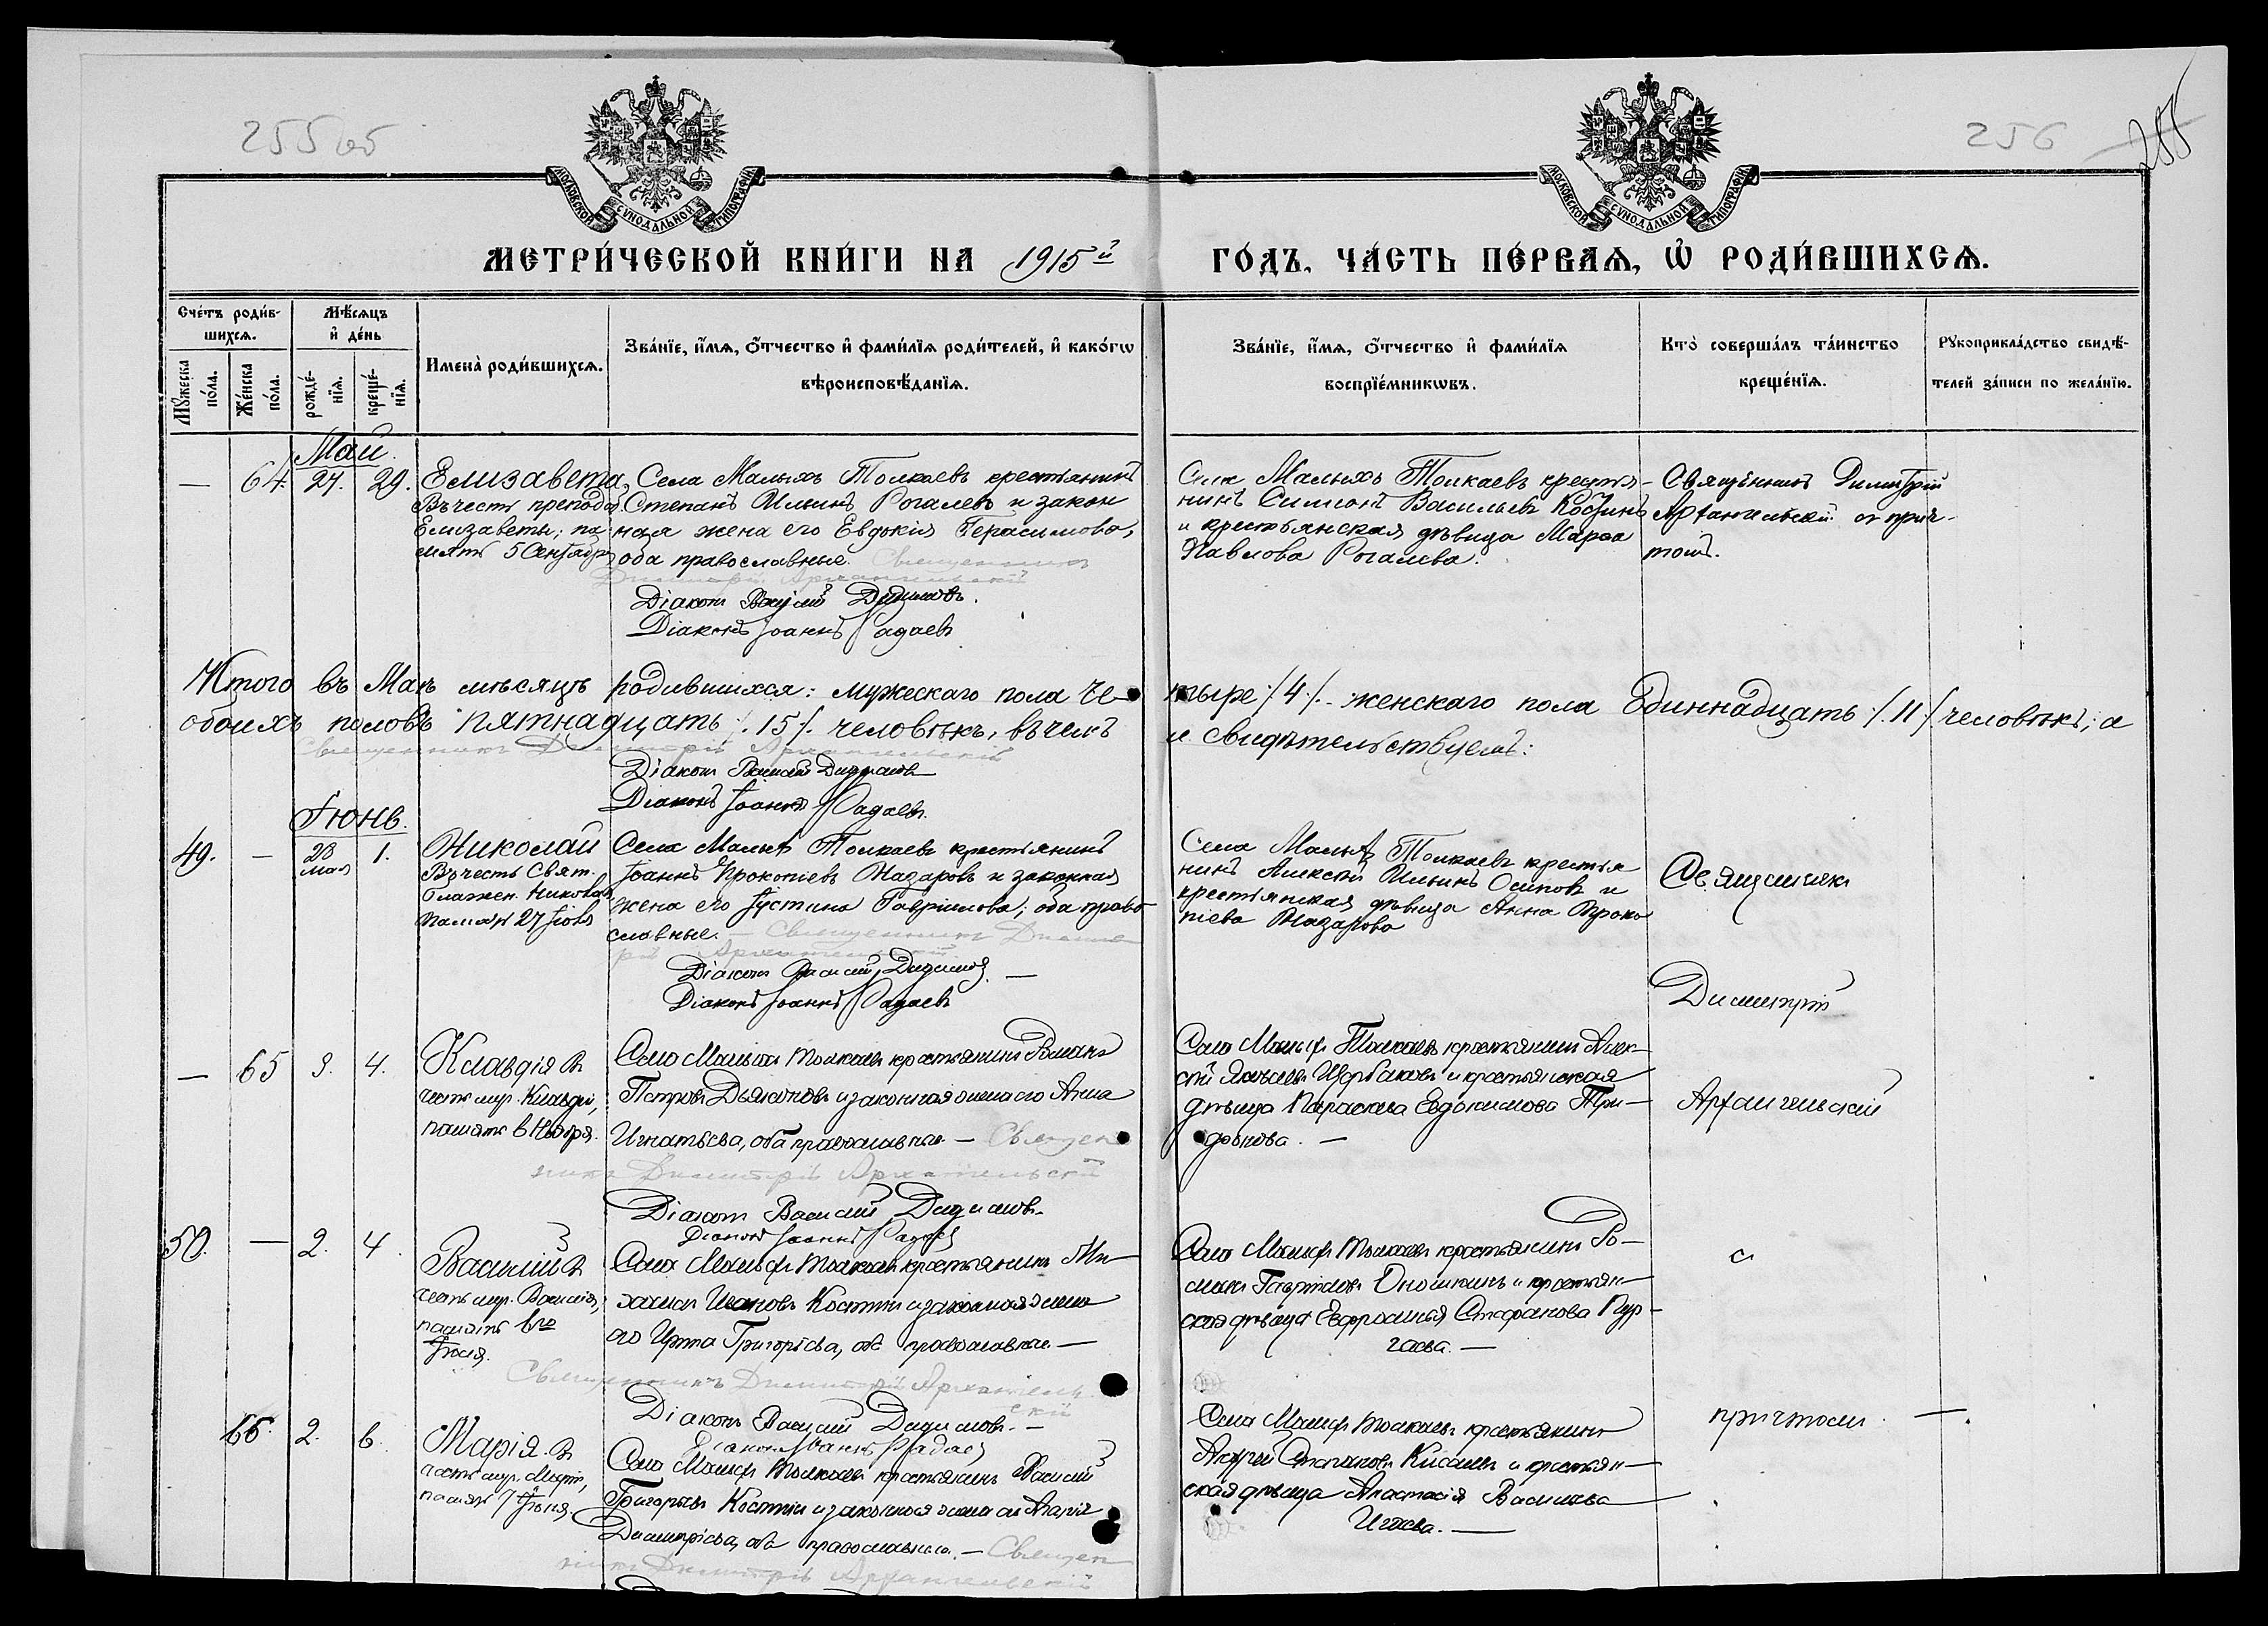 255 об
256
255
МОСКОВСКОЙ СУНОДАЛЬНОЙ ТИПОГРАФІИ
МОСКОВСКОЙ СУНОДАЛЬНОЙ ТИПОГРАФІИ
МЕТРИ́ЧЕСКОЙ КНИ́ГИ НА 1915й
ГО́ДЪ, ЧА́СТЬ ПЕ́РВАѦ, Ѿ РОДИ́ВШИХСѦ.
Сче́тъ роди́в-
шихсѧ.
Мѣ́сѧцъ
и҆ де́нь
Мꙋ́жеска
по́ла.
Же́нска
по́ла.
рожде́-
нїѧ.
креще́-
нїѧ.
Имена̀ роди́вшихсѧ.
Зва́нїе, и҆́мѧ, ѻ҆́тчество и҆ фами́лїѧ роди́телей, и҆ како́гѡ
вѣроисповѣ́данїѧ.
Зва́нїе, и҆́мѧ, ѻ҆́тчество и҆ фами́лїѧ
воспрїе́мникѡвъ.
Кто̀ соверша́лъ та́инство
креще́нїѧ.
Рꙋкоприкла́дство свидѣ́-
телей за́писи по жела́нїю.
Май.
— 64. 27. 29.
Елизавета
Въ честь препод.
Елизаветы; па-
мять 5 Сентябр
Села Малыхъ Толкаевъ крестьянинъ
Степанъ Ильинъ Рогалевъ и закон
ная жена его Евдокія Герасимова,
оба православные. Священникъ
Димитрій Архангельскій
Діаконъ Василій Дидимовъ.
Діаконъ Іоаннъ Радаевъ
Села Малыхъ Толкаевъ крестья-
нинъ Симеонъ Васильевъ Костинъ
и крестьянская дѣвица Марѳа
Павлова Рогалева.
Священникъ Димитрій
Архангельскій съ прич-
томъ.
Итого въ Маѣ мѣсяцѣ родившихся: мужескаго пола че-
тыре /4/. женскаго пола Одиннадцать /.11./ человѣкъ; а
обоихъ половъ пятнадцать /.15/. человѣкъ, въ чемъ
и свидѣтельствуемъ:
Священникъ Димитрій Архангельскій
Діаконъ Василій Дидимовъ
Діаконъ Іоаннъ Радаевъ.
Іюнь.
49. — 28 мая 1.
Николай
Въ честь Свят.
Блажен. Николая
Память 27 Іюля
Села Малыхъ Толкаевъ крестьянинъ
Іоаннъ Прокопіевъ Назаровъ и законная
жена его Іустина Гавріилова; оба право
славные. — Священникъ Димит
рій Архангельскій
Діаконъ Василій Дидимовъ. —
Діаконъ Іоаннъ Радаевъ
Села Малыхъ Толкаевъ крестья
нинъ Алексѣй Ильинъ Осиповъ и
крестьянская дѣвица Анна Проко
піева Назарова
Священникъ
Димитрій
— 65 3. 4.
Клавдія въ
честь муч. Клавдіи,
память 6 Ноября.
Села Малыхъ Толкаевъ крестьянинъ Романъ
Петровъ Дьяконовъ и законная жена его Анна
Игнатьева, оба православные. — Священ
никъ Димитрій Архангельскій
Діаконъ Василій Дидимовъ.
Діаконъ Іоаннъ Радаевъ
Села Малыхъ Толкаевъ крестьянинъ Алек-
сѣй Яковлевъ Щербаковъ и крестьянская
дѣвица Параскева Евдокимова Три-
фонова. —
Архангельскій
50. — 2. 4.
Василій въ
честь муч. Василія,
память 6го
Іюля.
Села Малыхъ Толкаевъ крестьянинъ Ми-
хаилъ Ивановъ Костинъ и законная жена
его Ирина Григорьева, оба православные. —
Священникъ Димитрій Архангель
скій
Діаконъ Василій Дидимовъ. —
Діаконъ Іоаннъ Радаевъ
Села Малыхъ Толкаевъ крестьянинъ Ро-
манъ Гавріиловъ и крестьян-
ская дѣвица Евфросинія Стефанова Пур-
гаева. —
с
66. 2. 6.
Марія. въ
честь муч. Маріи,
память 7 Іюня.
Села Малыхъ Толкаевъ крестьянинъ Василій
Григорьевъ Костинъ и законная жена его Марія
Димитріева, оба православные. — Священ
никъ Димитрій Архангельскій
Села Малыхъ Толкаевъ крестьянинъ
Андрей Степановъ Киселевъ и крестьян-
ская дѣвица Анастасія Васильева
причтомъ. —.